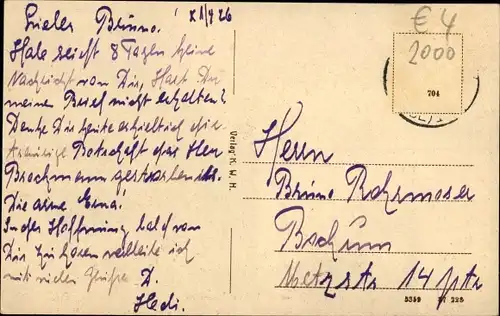 Lieber Bruno.
Habe seit 8 Tagen keine
Nachricht von Dir, Hast Du
meinen Brief nicht erhalten?
Denke Dir heute erhielt ich die
traurige Botschaft das Herr
Brockmann gestorben ist.
Die arme Erna.
In der Hoffnung bald von
Dir zu hören verbleibe ich
mit vielen Grüßen D.
Hedi.
€ 4
2000
704
Verlag K. W. H.
Herrn
Bruno
Bochum
14 ptr
5359 27 228